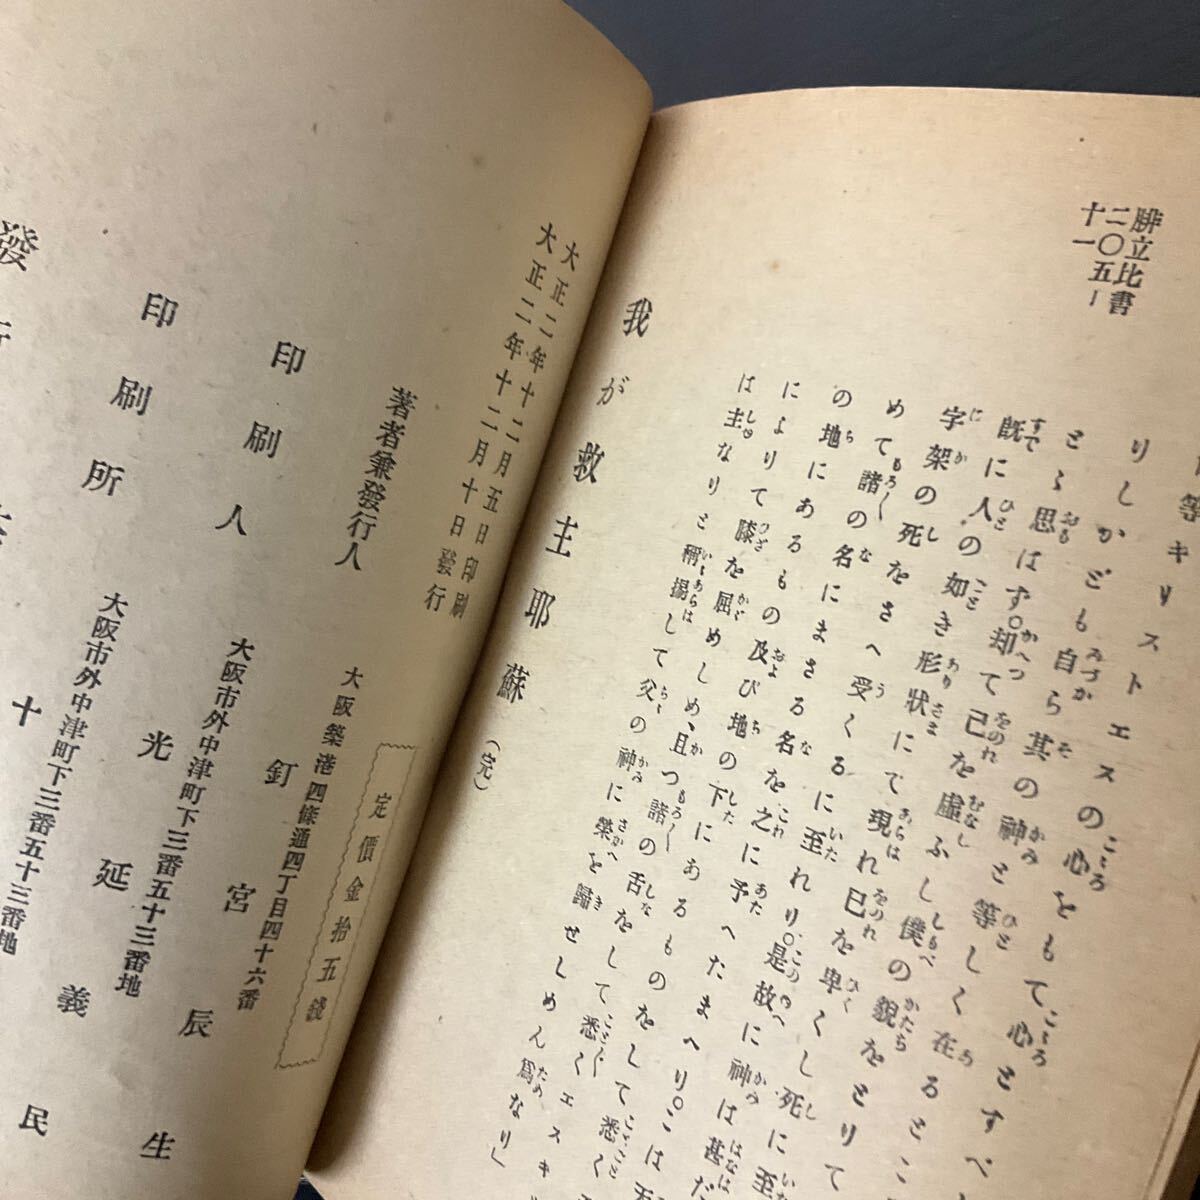 腓立比書
二〇五ー
十一
等キリストエスの心をもて心とすべ
りしかども自ら其の神と等しく在ること
とゝ思はず。却て己を虚ふし僕の貌をとりて
既に人の如き形状にて現れ已を卑くし死に至
字架の死をさへ受くるに至れり。是故に神は甚だ
めて諸の名にまさる名を之に予へたまへり。こは
の地にあるもの及び地の下にあるものをして悉く
によりて膝を屈めしめ、且つ諸の舌をして悉くエスキ
は主なりと稱揚して父の神に榮を歸せしめん爲なり」
我が救主耶蘇 (完)
大正二年十二月五日印刷
大正二年十二月十日發行
定價金拾五錢
著者兼發行人
大阪築港四條通四丁目四十六番
釘宮辰生
印刷人
大阪市外中津町下三番五十三番地
光延義民
印刷所
大阪市外中津町下三番五十三番地
十
發行